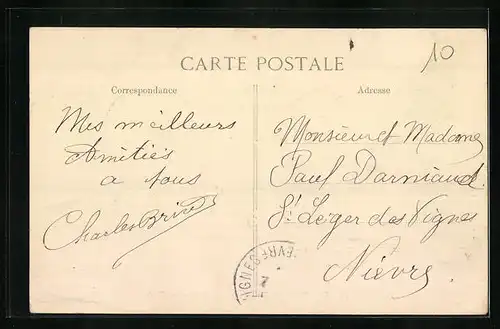 10
CARTE POSTALE
Correspondance
Adresse
Mes meilleurs
Amitiés
a tous
Charles
Monsieur et Madame
Paul Darniaud
St Leger des Vignes
Nièvre